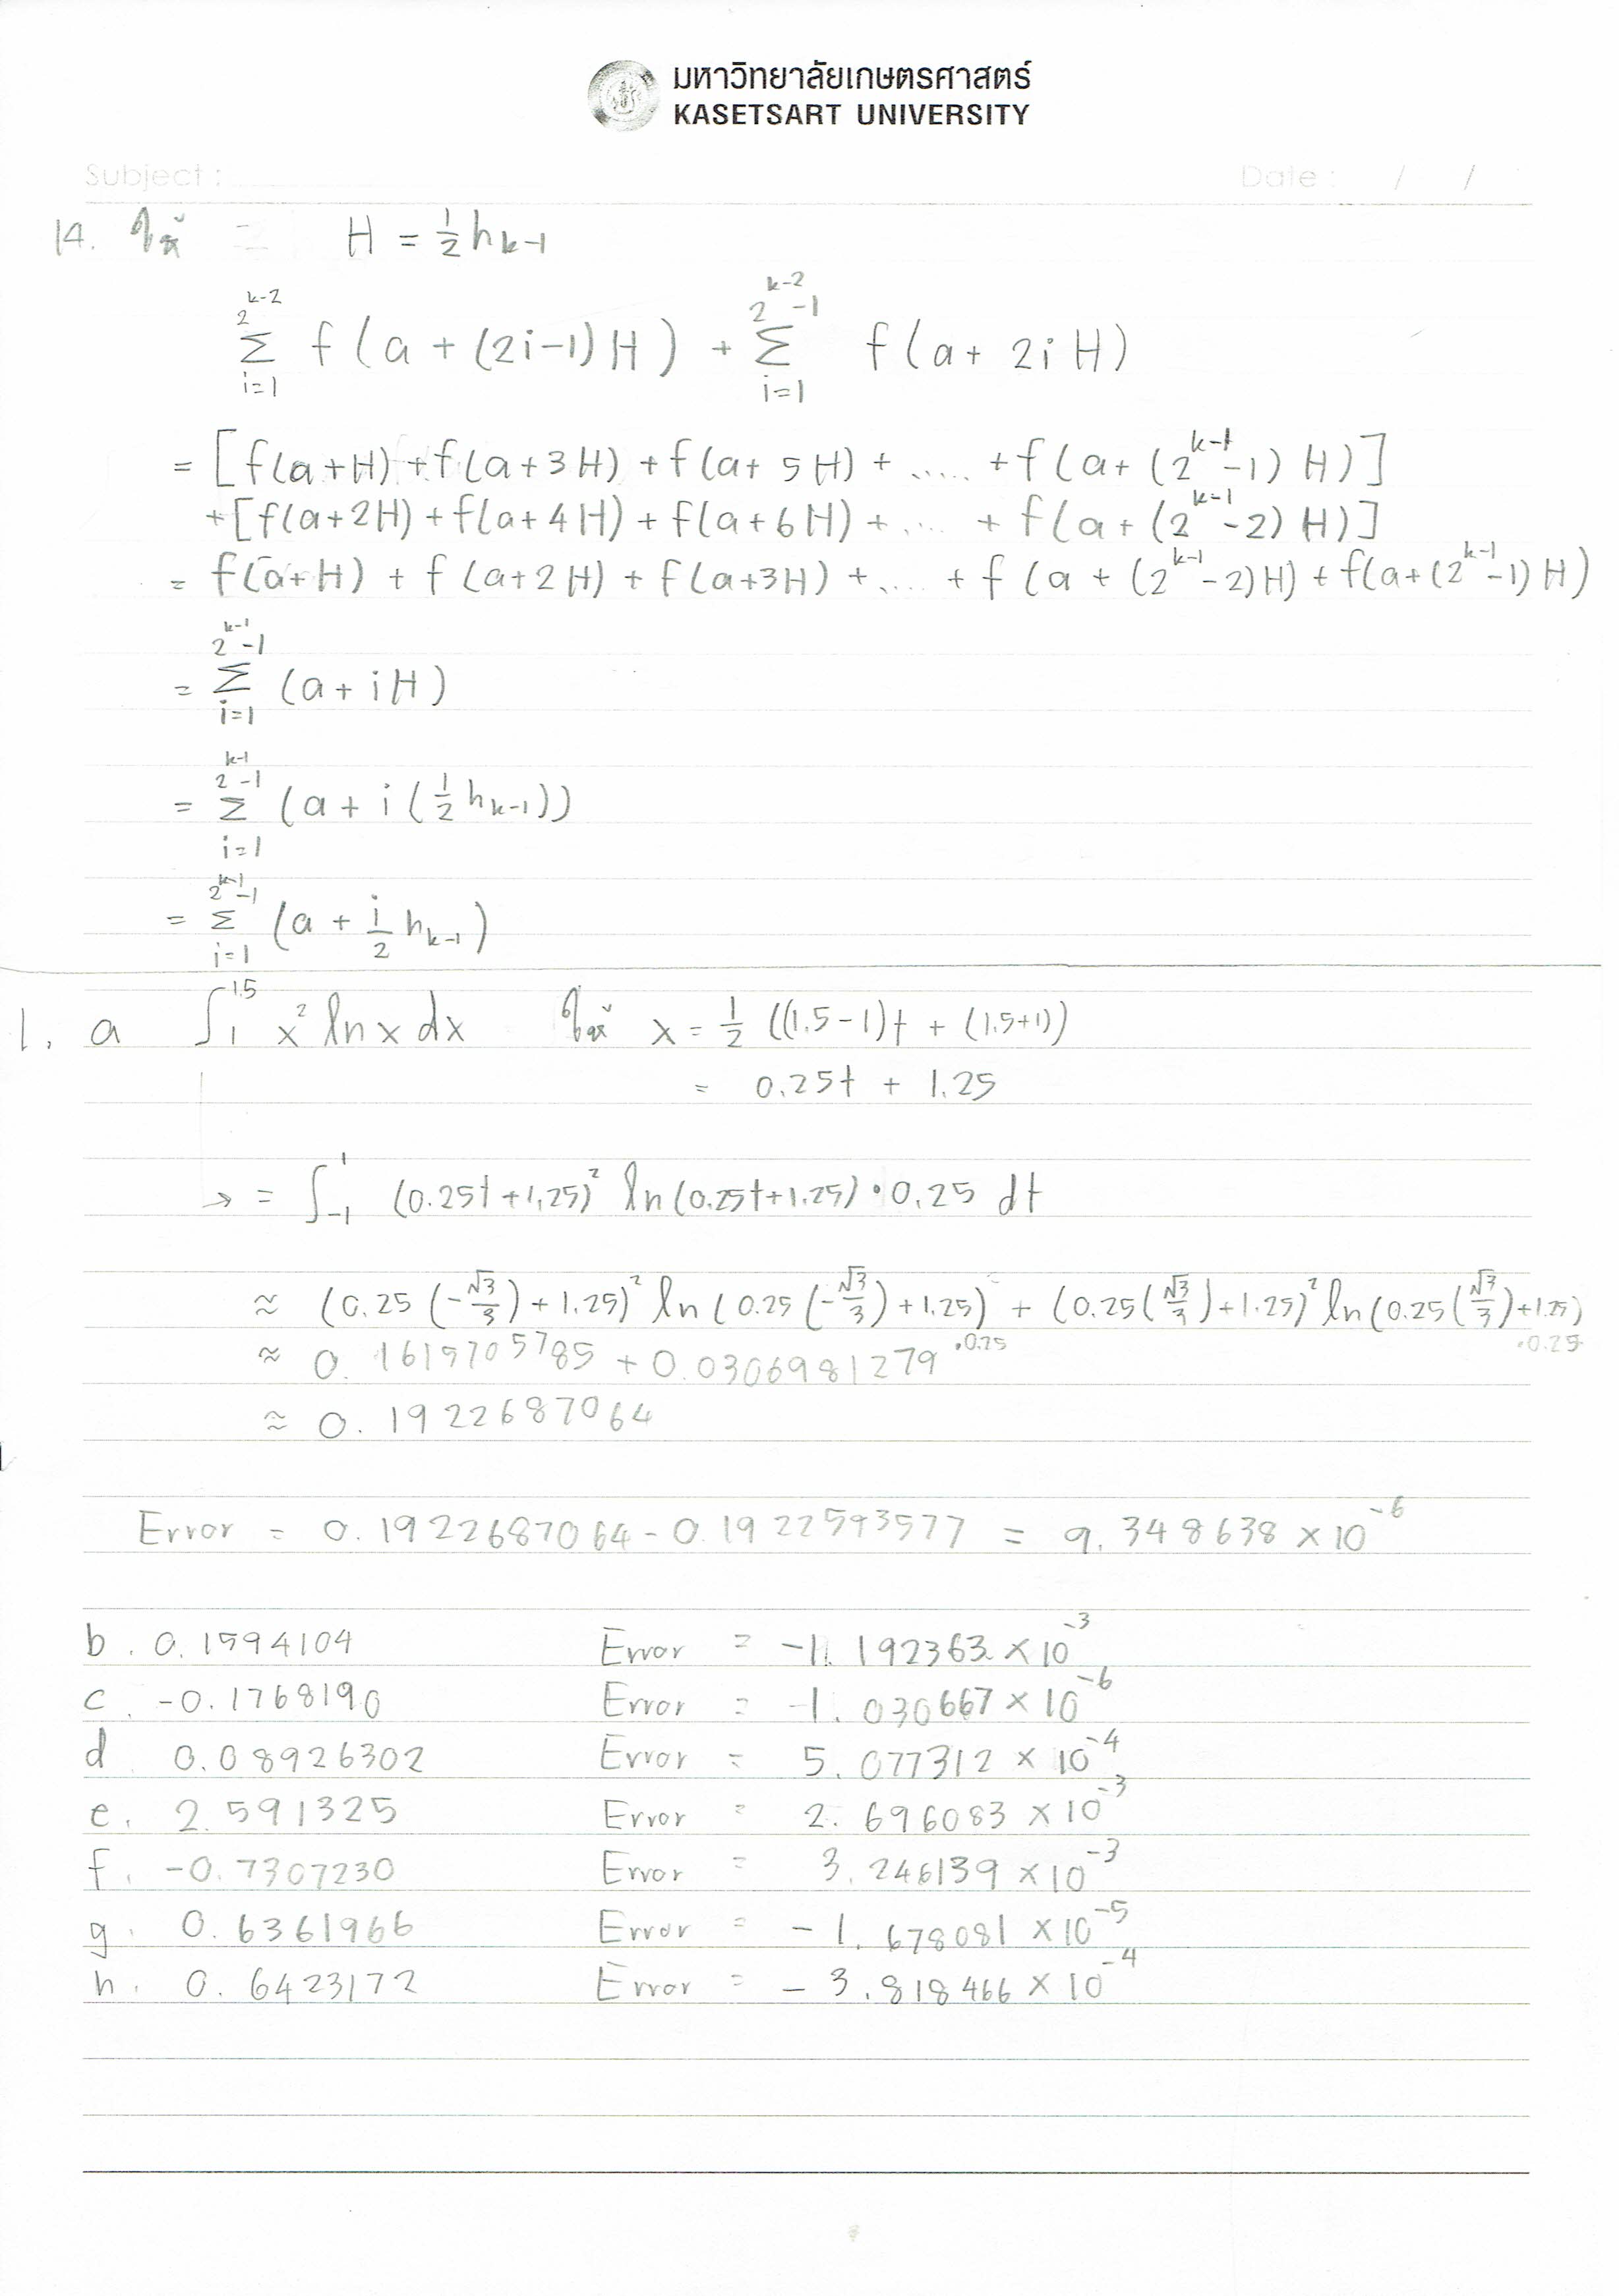 มหาวิทยาลัยเกษตรศาสตร์
KASETSART UNIVERSITY
Subject : Date : / /
14. ให้ H = ½ h_{k-1}
\sum_{i=1}^{2^{k-2}} f(a + (2i-1)H) + \sum_{i=1}^{2^{k-2}-1} f(a + 2iH)
= [f(a+H) + f(a+3H) + f(a+5H) + ..... + f(a+(2^{k-1}-1)H)]
+ [f(a+2H) + f(a+4H) + f(a+6H) + .... + f(a+(2^{k-1}-2)H)]
= f(a+H) + f(a+2H) + f(a+3H) + .... + f(a+(2^{k-1}-2)H) + f(a+(2^{k-1}-1)H)
= \sum_{i=1}^{2^{k-1}-1} (a + iH)
= \sum_{i=1}^{2^{k-1}-1} (a + i(½ h_{k-1}))
= \sum_{i=1}^{2^{k-1}-1} (a + \frac{i}{2} h_{k-1})
1. a \int_1^{1.5} x² ln x dx ให้ x = ½ ((1.5-1)t + (1.5+1))
= 0.25t + 1.25
→ = \int_{-1}^{1} (0.25t+1.25)² ln(0.25t+1.25) • 0.25 dt
≈ (0.25(-\frac{√3}{3})+1.25)² ln(0.25(-\frac{√3}{3})+1.25) + (0.25(\frac{√3}{3})+1.25)² ln(0.25(\frac{√3}{3})+1.25)
•0.25 •0.25
≈ 0.1615705785 + 0.0306981279
≈ 0.1922687064
Error = 0.1922687064 - 0.1922593577 = 9.348638 × 10^{-6}
b. 0.1594104 Error = -1.192363 × 10^{-3}
c. -0.1768190 Error = -1.030667 × 10^{-6}
d 0.08926302 Error = 5.077312 × 10^{-4}
e. 2.591325 Error = 2.696083 × 10^{-3}
f. -0.7307230 Error = 3.246139 × 10^{-3}
g. 0.6361966 Error = -1.678081 × 10^{-5}
h. 0.6423172 Error = -3.818466 × 10^{-4}